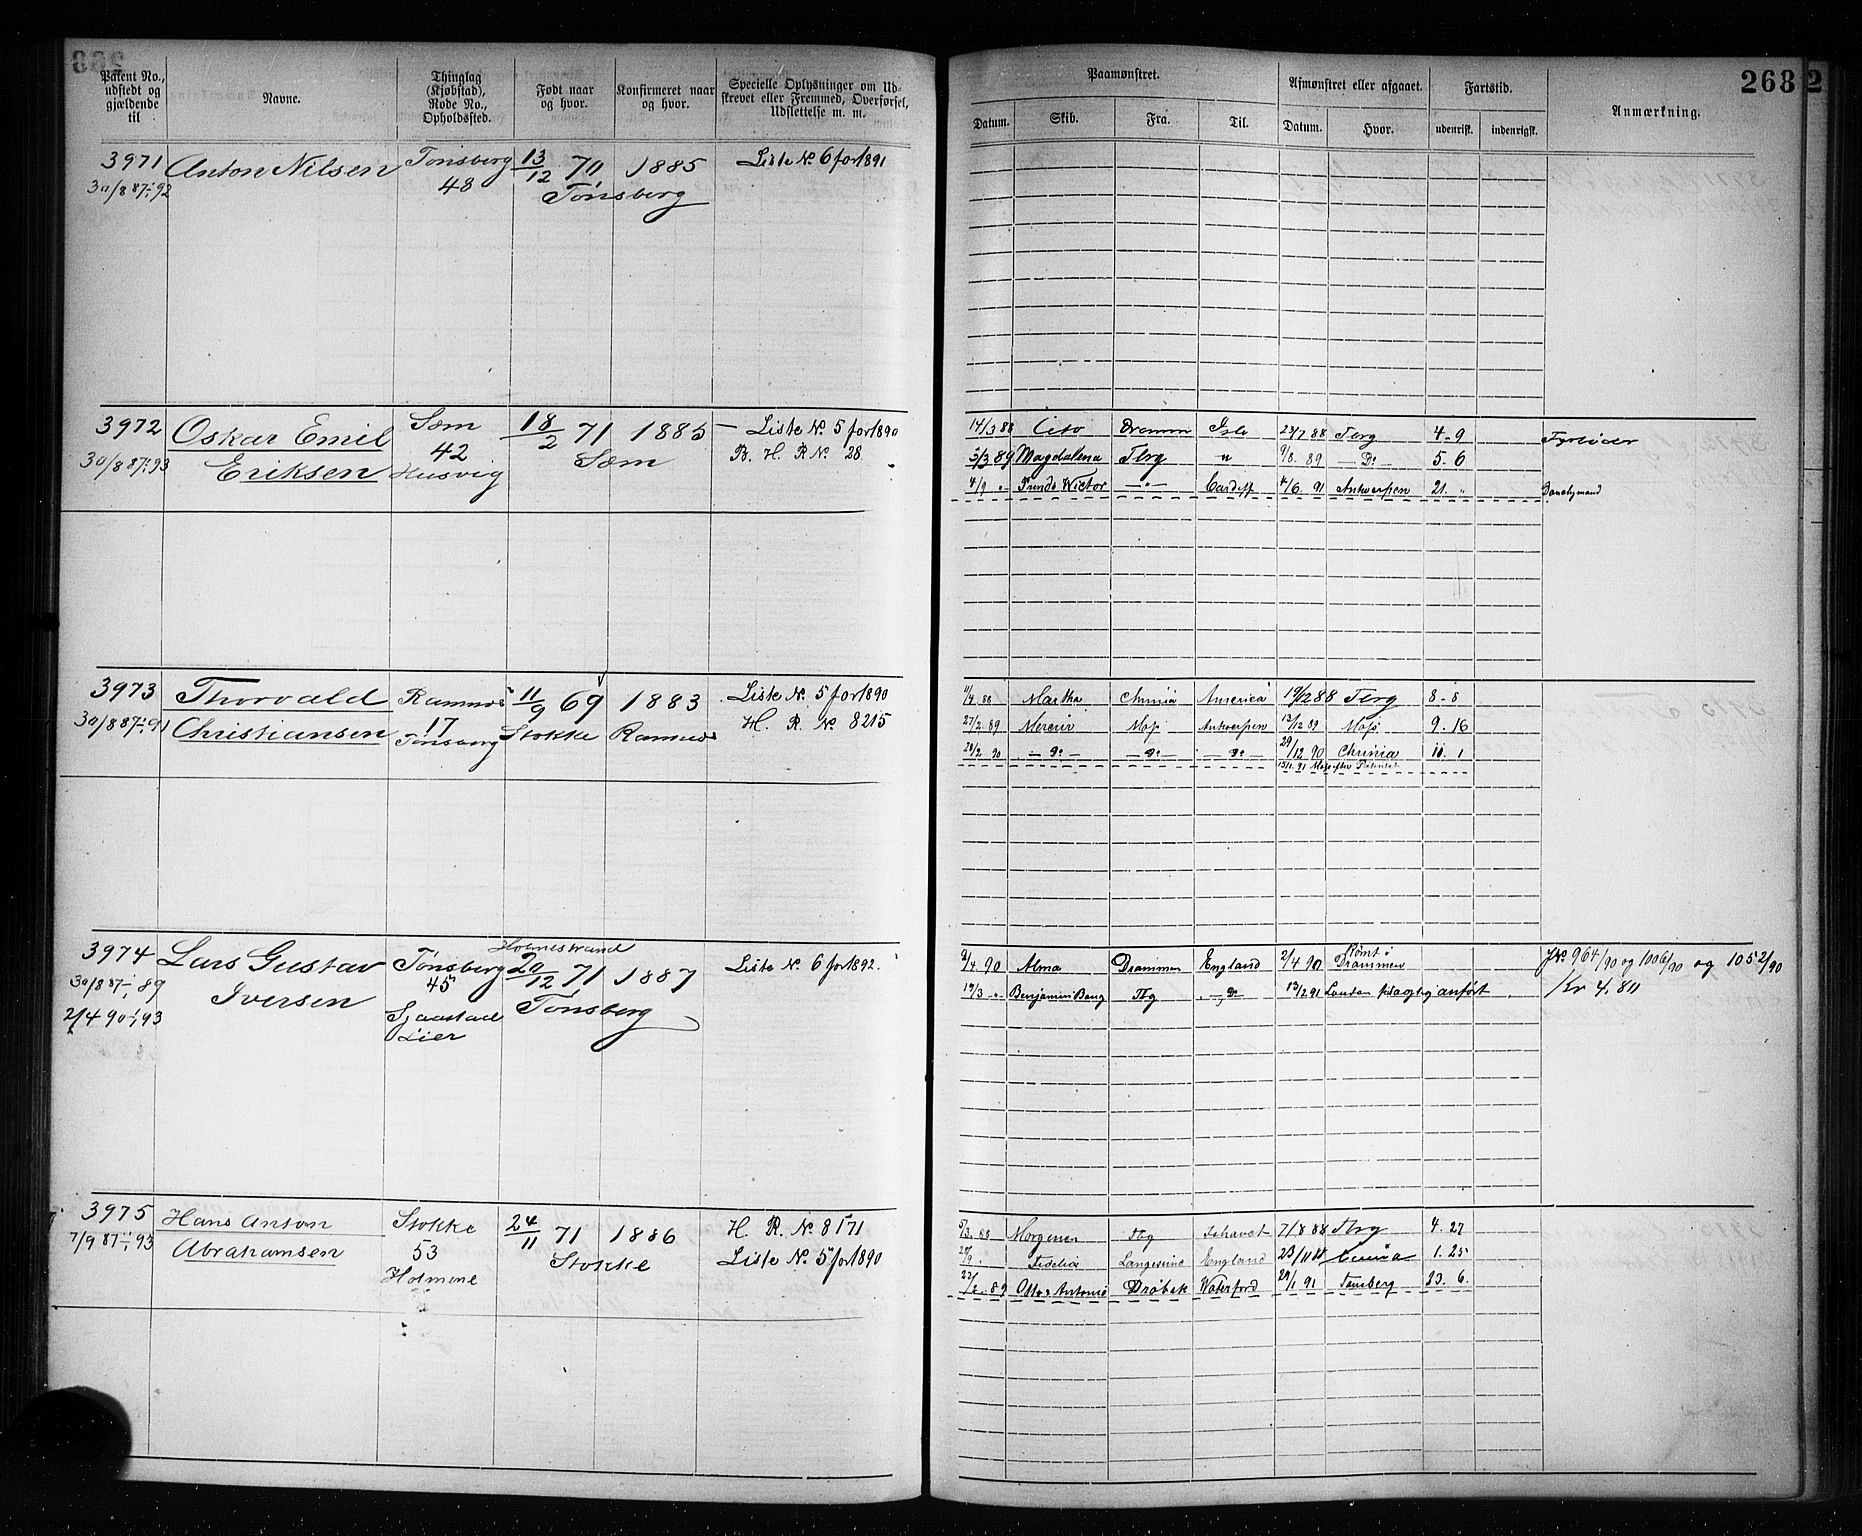 268
Patent No., udstedt og gjældende til
Navne.
Thinglag (Kjøbstad), Rode No., Opholdssted.
Født naar og hvor.
Konfirmeret naar og hvor.
Specielle Oplysninger om Udskrevet eller Fremmed, Overførsel, Udslettelse m. m.
Paamønstret.
Afmønstret eller afgaaet.
Fartstid.
Anmærkning.
Datum.
Skib.
Fra.
Til.
Datum.
Hvor.
udenrisk.
indenrigsk.
3971 Anton Nilsen Tønsberg 13/12 70 1885 Liste No. 6 for 1891
30/8 87 - 92 48 Tønsberg
3972 Oskar Emil Sæm 18/2 71 1885 Liste No. 5 for 1890
30/8 87 - 93 Eriksen 42 Husvig Sæm B. H. R No. 28.
14/3 88 Cito Drammen Isle 23/7 88 Tbrg 4 - 9 Fyrbøder
5/3 89 Magdalena Tbrg " 9/8 89 - Do - 5. 6
4/9 " Trende Wictor - " - Cardiff 4/6 91 Antwerpen 21. "
3973 Thorvald Ramnæs 11/9 69 1883 Liste No. 5 for 1890
30/8 87 - 91 Christiansen 17 Tønsberg Stokke Ramnæs H. R. No. 8215
11/4 88 Martha Chrinia America 19/12 88 Tbrg 8 - 8
27/2 89 Mercur Moss Antwerpen 13/12 89 Moss 9. 16
28/2 90 - Do - - Do - - Do - 29/12 90 Chrinia 10. 1
3974 Lars Gustav Tønsberg Holmestrand 20/12 71 1887 Liste No. 6 for 1892.
30/8 87 - 89 Iversen 45 Tønsberg
2/4 90 - 93 Sjaastad Lier
2/4 90 Alma Drammen England 2/4 90 Rømt i Drammen J No 964/90 og 1006/90 og 1052/90
19/3 " Benjamin Bang Tbg - Do 13/2 91 London anført
3975 Hans Anton Stokke 24/11 71 1886 H. R. No. 8171
7/9 87 - 93 Abrahamsen 53 Holmene Stokke Liste No. 5 for 1890
5/3 88 Morgenen Tbg Ishavet 7/8 88 Tbrg 4. 27
Fidelia Langesund England 23/11 88 1. 25
22/2 89 Otto & Antonie Drøbak Waterford 29/1 91 Tønsberg 23. 6.